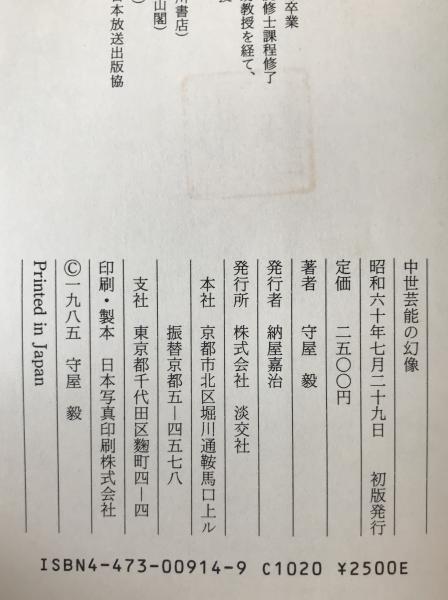 卒業
修士課程修了
教授を経て、
川書店）
山閣）
日本放送出版協
中世芸能の幻像
昭和六十年七月二十九日　初版発行
定価　二五〇〇円
著者　守屋　毅
発行者　納屋嘉治
発行所　株式会社　淡交社
本社　京都市北区堀川通鞍馬口上ル
振替京都五—四五七八
支社　東京都千代田区麴町四—四
印刷・製本　日本写真印刷株式会社
Ⓒ一九八五　守屋　毅
Printed in Japan
ISBN4-473-00914-9 C1020 ¥2500E